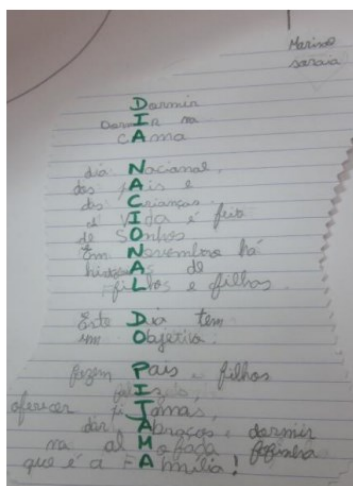 Marisol
saraiva
Dormir
DormIr na
cAma
dia Nacional,
dos pAis e
das Crianças.
A vIda é feita
de SOnhos
Em Novembro há
histórias de
fiLhos e filhos.
Este Dia tem
um Objetivo:
fazem Pais e filhos
oferecer piJamas,
dar Abraços e dormir
na alMofada fofinha
que é a FAmília!